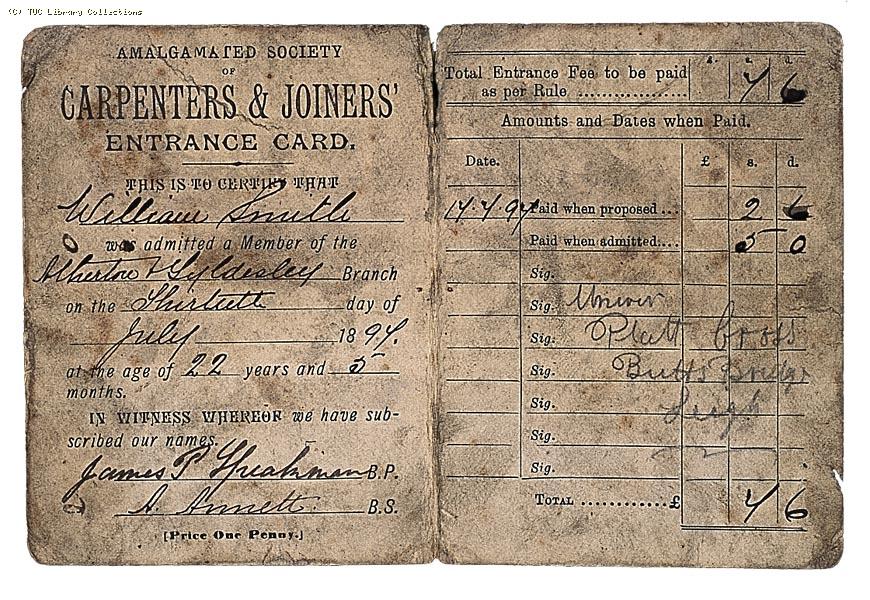 (C) TUC Library Collections
AMALGAMATED SOCIETY
OF
CARPENTERS & JOINERS'
ENTRANCE CARD.
THIS IS TO CERTIFY THAT
William Smith
was admitted a Member of the
Atherton & Tyldesley Branch
on the Thirtieth day of
July 1894.
at the age of 22 years and 5
months.
IN WITNESS WHEREOF we have sub-
scribed our names.
James P Speakman B.P.
A. Annett B.S.
[Price One Penny.]
£. s. d.
Total Entrance Fee to be paid
as per Rule .................. 6
Amounts and Dates when Paid.
Date. £ s. d.
Paid when proposed... 2 6
Paid when admitted.... 5 0
Sig.
Sig.
Sig. Platt Cross
Sig. Butts Bridge
Sig. Leigh
Sig.
Sig.
TOTAL ............£ 6